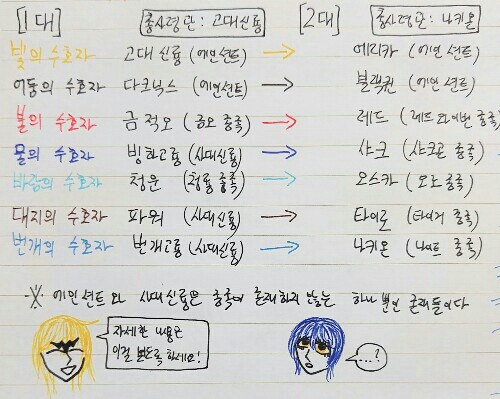 [1대] 총사령관 : 고대신룡 [2대] 총사령관 : 나키온
빛의 수호자 고대신룡 (에인션트) → 에리카 (에인션트)
어둠의 수호자 다크닉스 (에인션트) → 블랙퀸 (에인션트)
불의 수호자 금적오 (금오 종족) → 레드 (레드와이번 종족)
물의 수호자 빙하고룡 (사대신룡) → 샤크 (샤크곤 종족)
바람의 수호자 청운 (청룡 종족) → 오스카 (오르 종족)
대지의 수호자 파워 (사대신룡) → 타이로 (타이거 종족)
번개의 수호자 번개고룡 (사대신룡) → 나키온 (나이트 종족)
※ 에인션트와 사대신룡은 종족이 존재하지 않는 하나뿐인 존재들이다
자세한 내용은
이걸 보도록 하세요!
...?